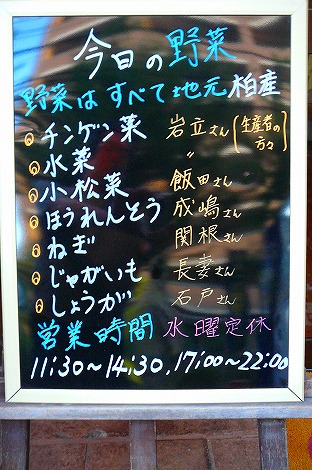 今日の野菜
野菜はすべて地元、柏産
チンゲン菜 岩立さん (生産者の方々)
水菜 〃
小松菜 飯田さん
ほうれんそう 成嶋さん
ねぎ 関根さん
じゃがいも 長妻さん
しょうが 石戸さん
営業時間 水曜定休
11:30～14:30, 17:00～22:00